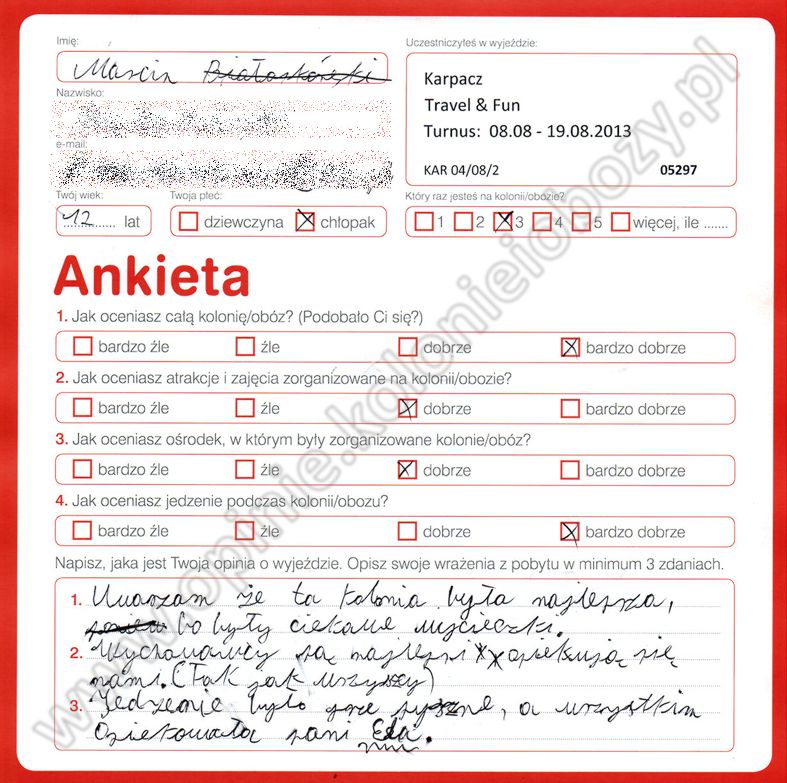 Imię:
Marcin
Nazwisko:
e-mail:
Twój wiek:
12 lat
Twoja płeć:
dziewczyna chłopak
Uczestniczyłeś w wyjeździe:
Karpacz
Travel & Fun
Turnus: 08.08 - 19.08.2013
KAR 04/08/2 05297
Który raz jesteś na kolonii/obozie?
1 2 3 4 5 więcej, ile .......
Ankieta
1. Jak oceniasz całą kolonię/obóz? (Podobało Ci się?)
bardzo źle źle dobrze bardzo dobrze
2. Jak oceniasz atrakcje i zajęcia zorganizowane na kolonii/obozie?
bardzo źle źle dobrze bardzo dobrze
3. Jak oceniasz ośrodek, w którym były zorganizowane kolonie/obóz?
bardzo źle źle dobrze bardzo dobrze
4. Jak oceniasz jedzenie podczas kolonii/obozu?
bardzo źle źle dobrze bardzo dobrze
Napisz, jaka jest Twoja opinia o wyjeździe. Opisz swoje wrażenia z pobytu w minimum 3 zdaniach.
1. Uważam że ta kolonia była najlepsza,
bo były ciekawe wycieczki.
2. Wychowawcy są najlepsi opiekują się
nami. (Tak jak wszyscy)
3. Jedzenie było pyszne, a wszystkim
opiekowała pani Ela.
www.opinie.kolonieiobozy.pl